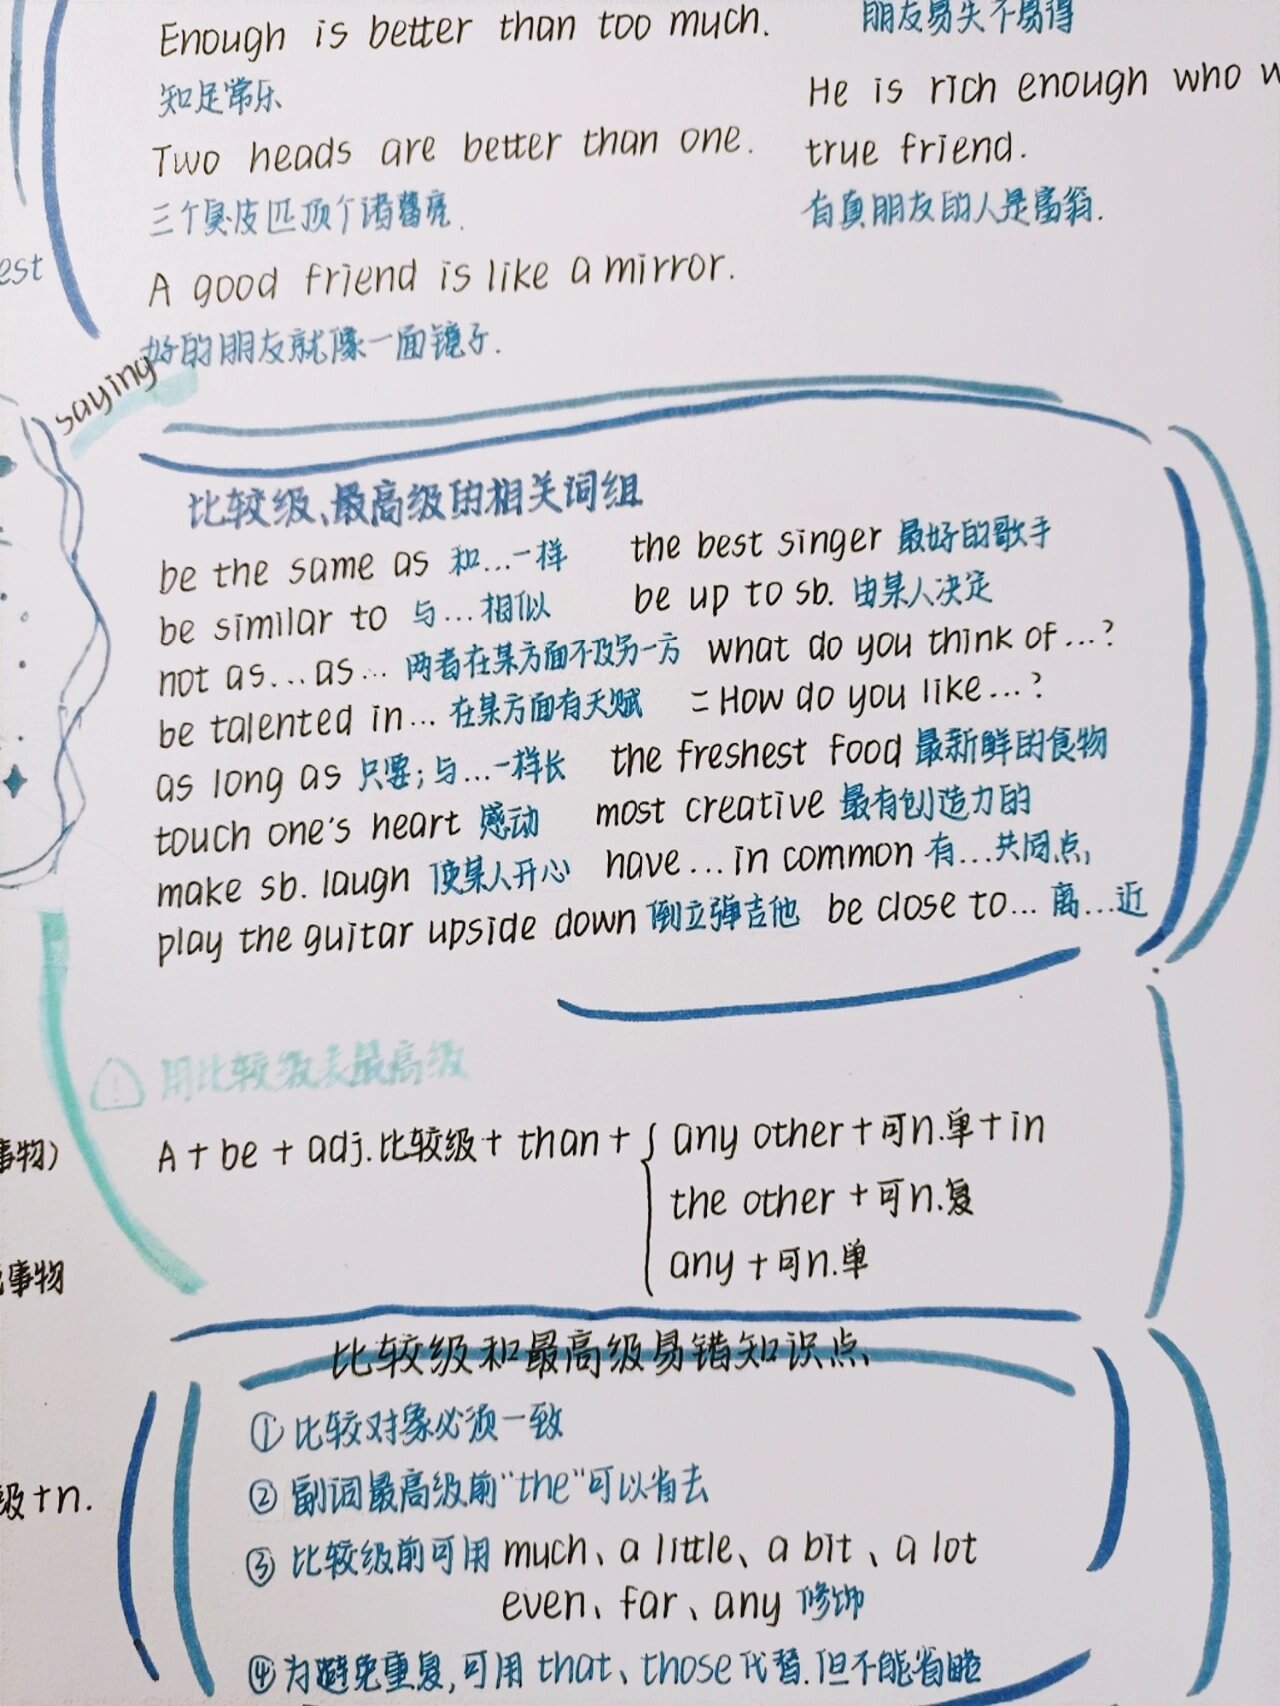 Enough is better than too much.
知足常乐
Two heads are better than one.
三个臭皮匹顶个诸葛亮.
A good friend is like a mirror.
好的朋友就像一面镜子.
朋友易失不易得
He is rich enough who w
true friend.
有真朋友的人是富翁.
est
saying
比较级、最高级的相关词组
be the same as 和…一样 the best singer 最好的歌手
be similar to 与…相似 be up to sb. 由某人决定
not as…as… 两者在某方面不及另一方 what do you think of…?
be talented in… 在某方面有天赋 = How do you like…?
as long as 只要;与…一样长 the freshest food 最新鲜的食物
touch one's heart 感动 most creative 最有创造力的
make sb. laugh 使某人开心 have…in common 有…共同点
play the guitar upside down 倒立弹吉他 be close to… 离…近
用比较级表最高级
A + be + adj.比较级 + than + { any other + 可n.单 + in
the other + 可n.复
any + 可n.单
事物)
事物
级+n.
比较级和最高级易错知识点
① 比较对象必须一致
② 副词最高级前"the"可以省去
③ 比较级前可用 much、a little、a bit、a lot
even、far、any 修饰
④ 为避免重复,可用 that、those代替.但不能省略